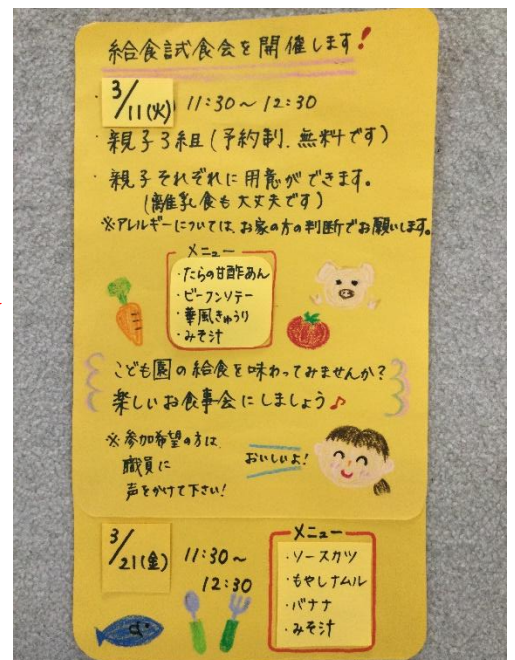 給食試食会を開催します!
・3/11(火) 11:30~12:30
・親子3組(予約制.無料です)
・親子それぞれに用意ができます。
(離乳食も大丈夫です)
※アレルギーについては、お家の方の判断でお願いします。
メニュー
・たらの甘酢あん
・ビーフンソテー
・華風きゅうり
・みそ汁
こども園の給食を味わってみませんか?
楽しいお食事会にしましょう♪
※参加希望の方は、
職員に
声をかけて下さい!
おいしいよ!
3/21(金) 11:30~
12:30
メニュー
・ソースカツ
・もやしナムル
・バナナ
・みそ汁